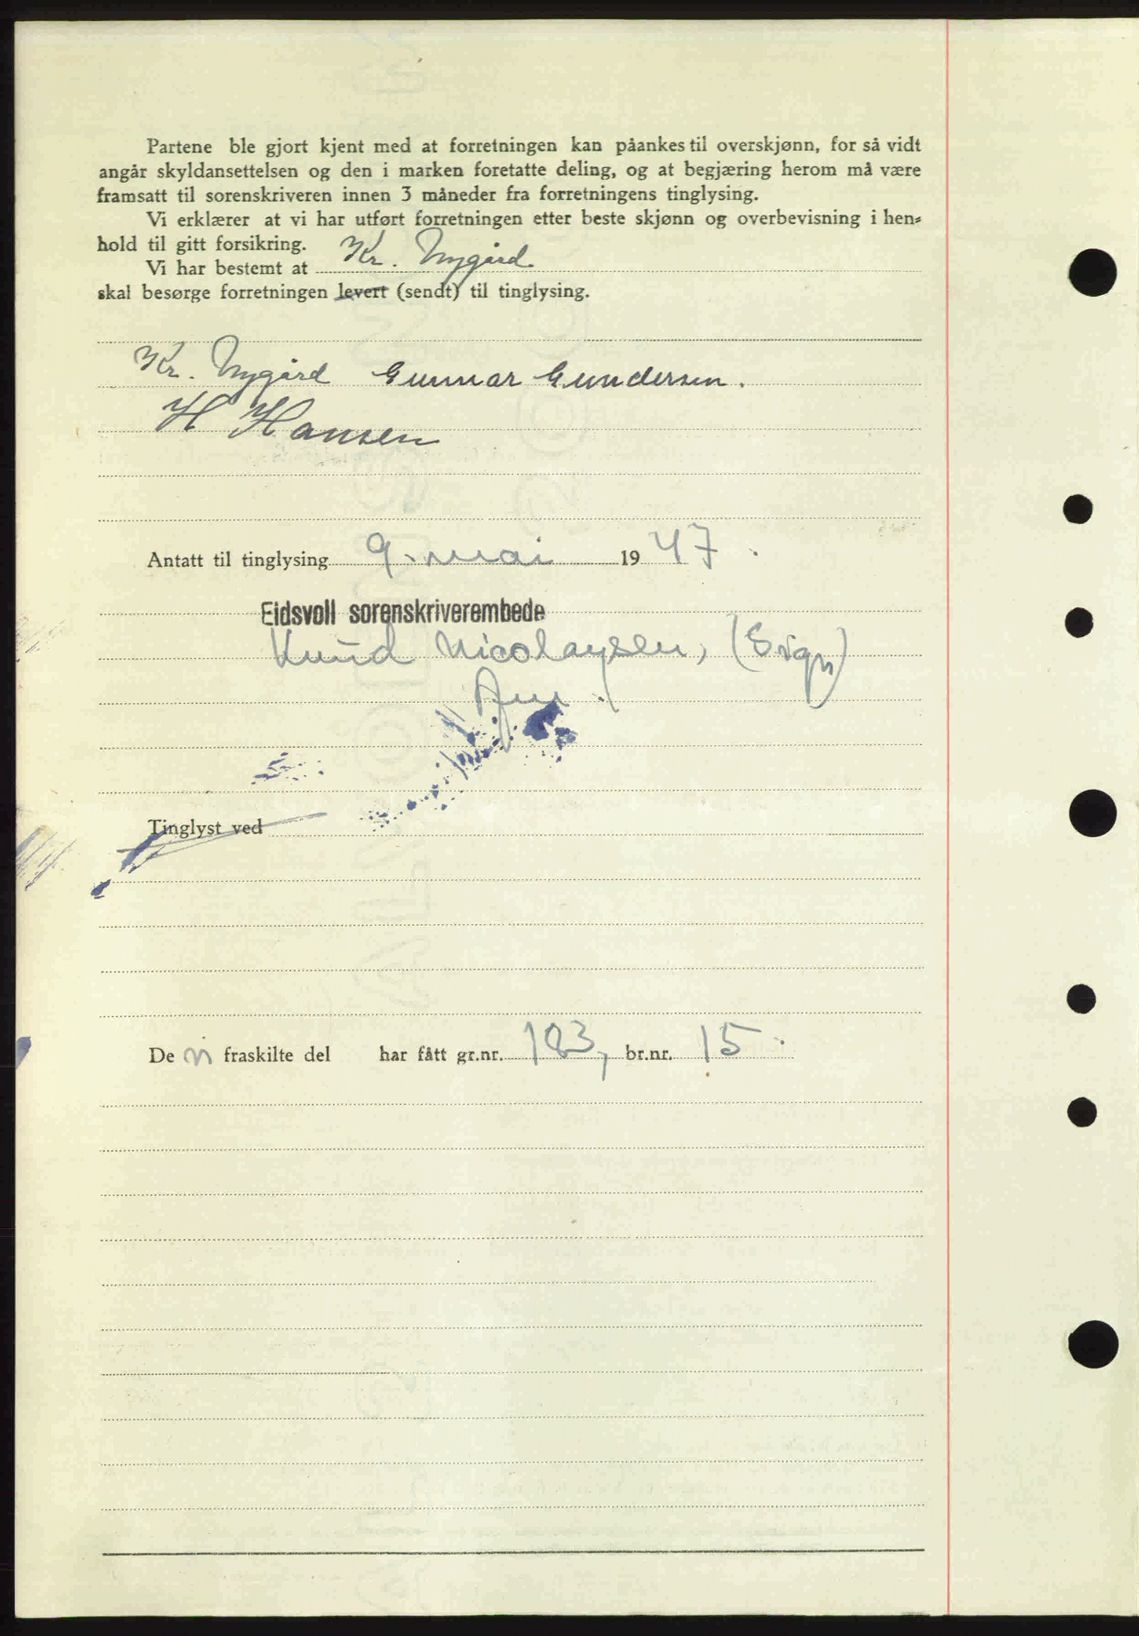 Partene ble gjort kjent med at forretningen kan påankes til overskjønn, for så vidt
angår skyldansettelsen og den i marken foretatte deling, og at begjæring herom må være
framsatt til sorenskriveren innen 3 måneder fra forretningens tinglysing.
Vi erklærer at vi har utført forretningen etter beste skjønn og overbevisning i hen-
hold til gitt forsikring.
Vi har bestemt at Kr. Nygård
skal besørge forretningen levert (sendt) til tinglysing.
Kr. Nygård Gunnar Gundersen.
H Hansen
Antatt til tinglysing 9. mai 1947.
Eidsvoll sorenskriverembede
Knud Nicolaysen, (Sign)
Tinglyst ved
De n fraskilte del har fått gr.nr. 123, br.nr. 15.